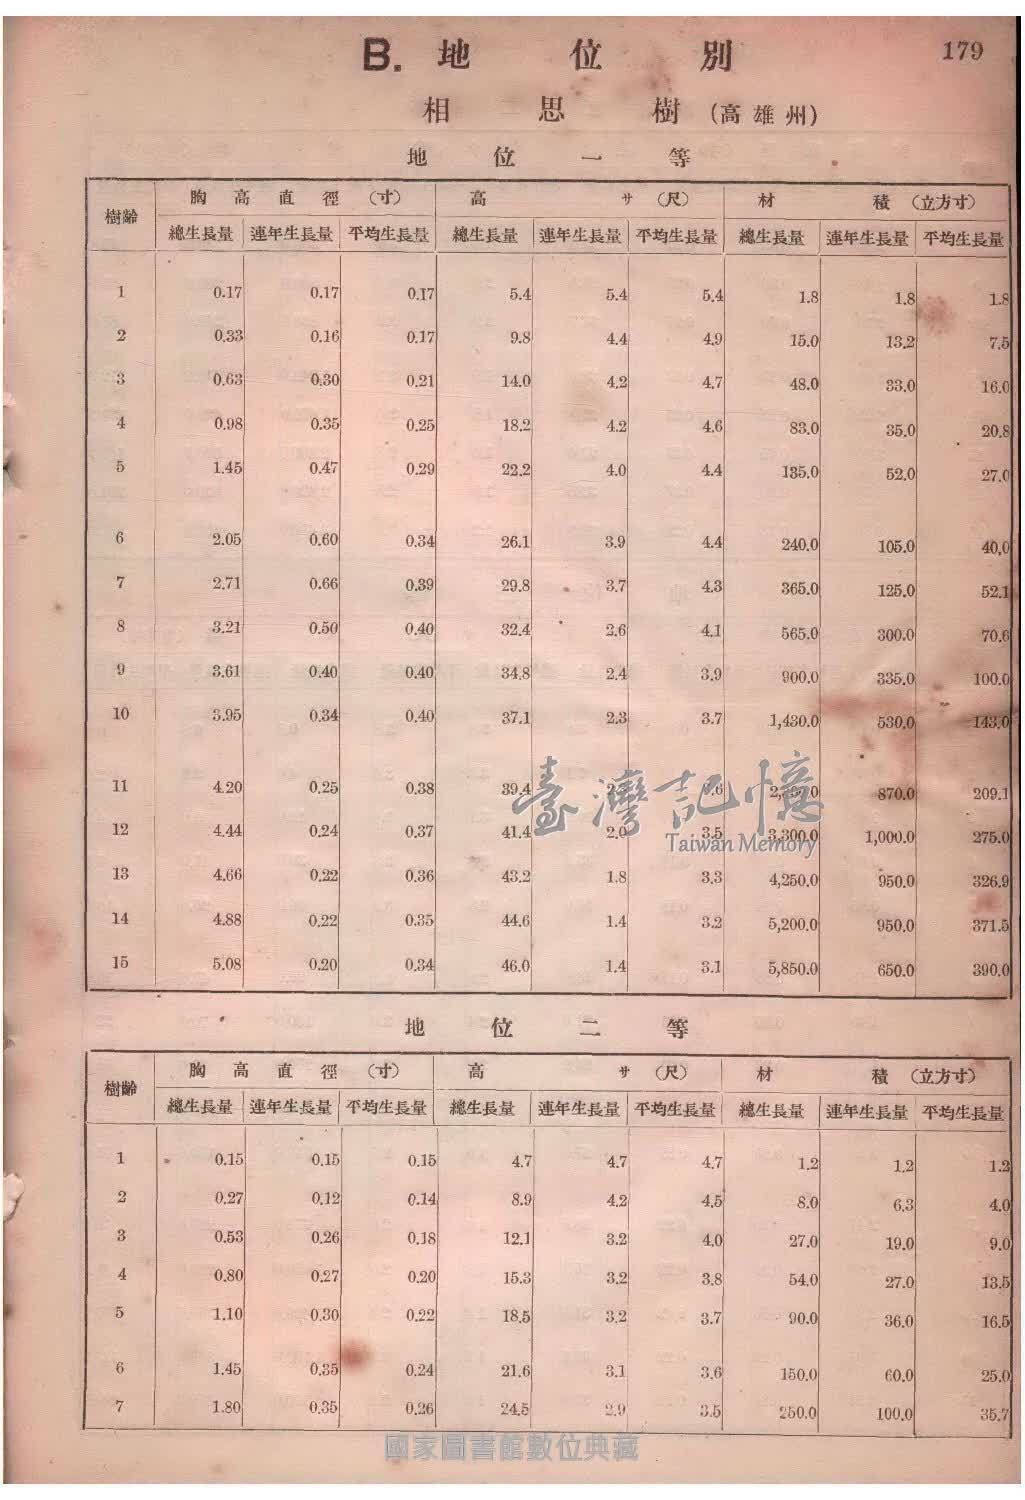 B. 地位別
179
相思樹 (高雄州)
地位一等
樹齡 胸高直徑 (寸) 高サ (尺) 材積 (立方寸)
總生長量 連年生長量 平均生長量 總生長量 連年生長量 平均生長量 總生長量 連年生長量 平均生長量
1 0.17 0.17 0.17 5.4 5.4 5.4 1.8 1.8 1.8
2 0.33 0.16 0.17 9.8 4.4 4.9 15.0 13.2 7.5
3 0.63 0.30 0.21 14.0 4.2 4.7 48.0 33.0 16.0
4 0.98 0.35 0.25 18.2 4.2 4.6 83.0 35.0 20.8
5 1.45 0.47 0.29 22.2 4.0 4.4 135.0 52.0 27.0
6 2.05 0.60 0.34 26.1 3.9 4.4 240.0 105.0 40.0
7 2.71 0.66 0.39 29.8 3.7 4.3 365.0 125.0 52.1
8 3.21 0.50 0.40 32.4 2.6 4.1 565.0 300.0 70.6
9 3.61 0.40 0.40 34.8 2.4 3.9 900.0 335.0 100.0
10 3.95 0.34 0.40 37.1 2.3 3.7 1,430.0 530.0 143.0
11 4.20 0.25 0.38 39.4 870.0 209.1
12 4.44 0.24 0.37 41.4 2.0 3.5 3,300.0 1,000.0 275.0
13 4.66 0.22 0.36 43.2 1.8 3.3 4,250.0 950.0 326.9
14 4.88 0.22 0.35 44.6 1.4 3.2 5,200.0 950.0 371.5
15 5.08 0.20 0.34 46.0 1.4 3.1 5,850.0 650.0 390.0
臺灣記憶
Taiwan Memory
地位二等
樹齡 胸高直徑 (寸) 高サ (尺) 材積 (立方寸)
總生長量 連年生長量 平均生長量 總生長量 連年生長量 平均生長量 總生長量 連年生長量 平均生長量
1 0.15 0.15 0.15 4.7 4.7 4.7 1.2 1.2 1.2
2 0.27 0.12 0.14 8.9 4.2 4.5 8.0 6.3 4.0
3 0.53 0.26 0.18 12.1 3.2 4.0 27.0 19.0 9.0
4 0.80 0.27 0.20 15.3 3.2 3.8 54.0 27.0 13.5
5 1.10 0.30 0.22 18.5 3.2 3.7 90.0 36.0 16.5
6 1.45 0.35 0.24 21.6 3.1 3.6 150.0 60.0 25.0
7 1.80 0.35 0.26 24.5 2.9 3.5 250.0 100.0 35.7
國家圖書館數位典藏